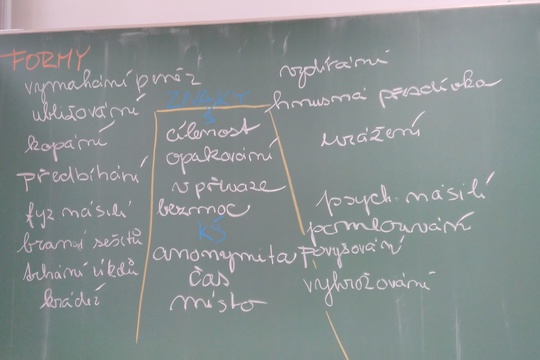 FORMY
vymáhání peněz
ubližování
kopání
předbíhání
fyz násilí
braní sešitů
krádež
ZNAKY
Š
cílenost
opakování
v převaze
bezmoc
KŠ
anonymita
čas
místo
hnusná přezdívka
urážení
psych. násilí
pomlouvání
povyšování
vyhrožování